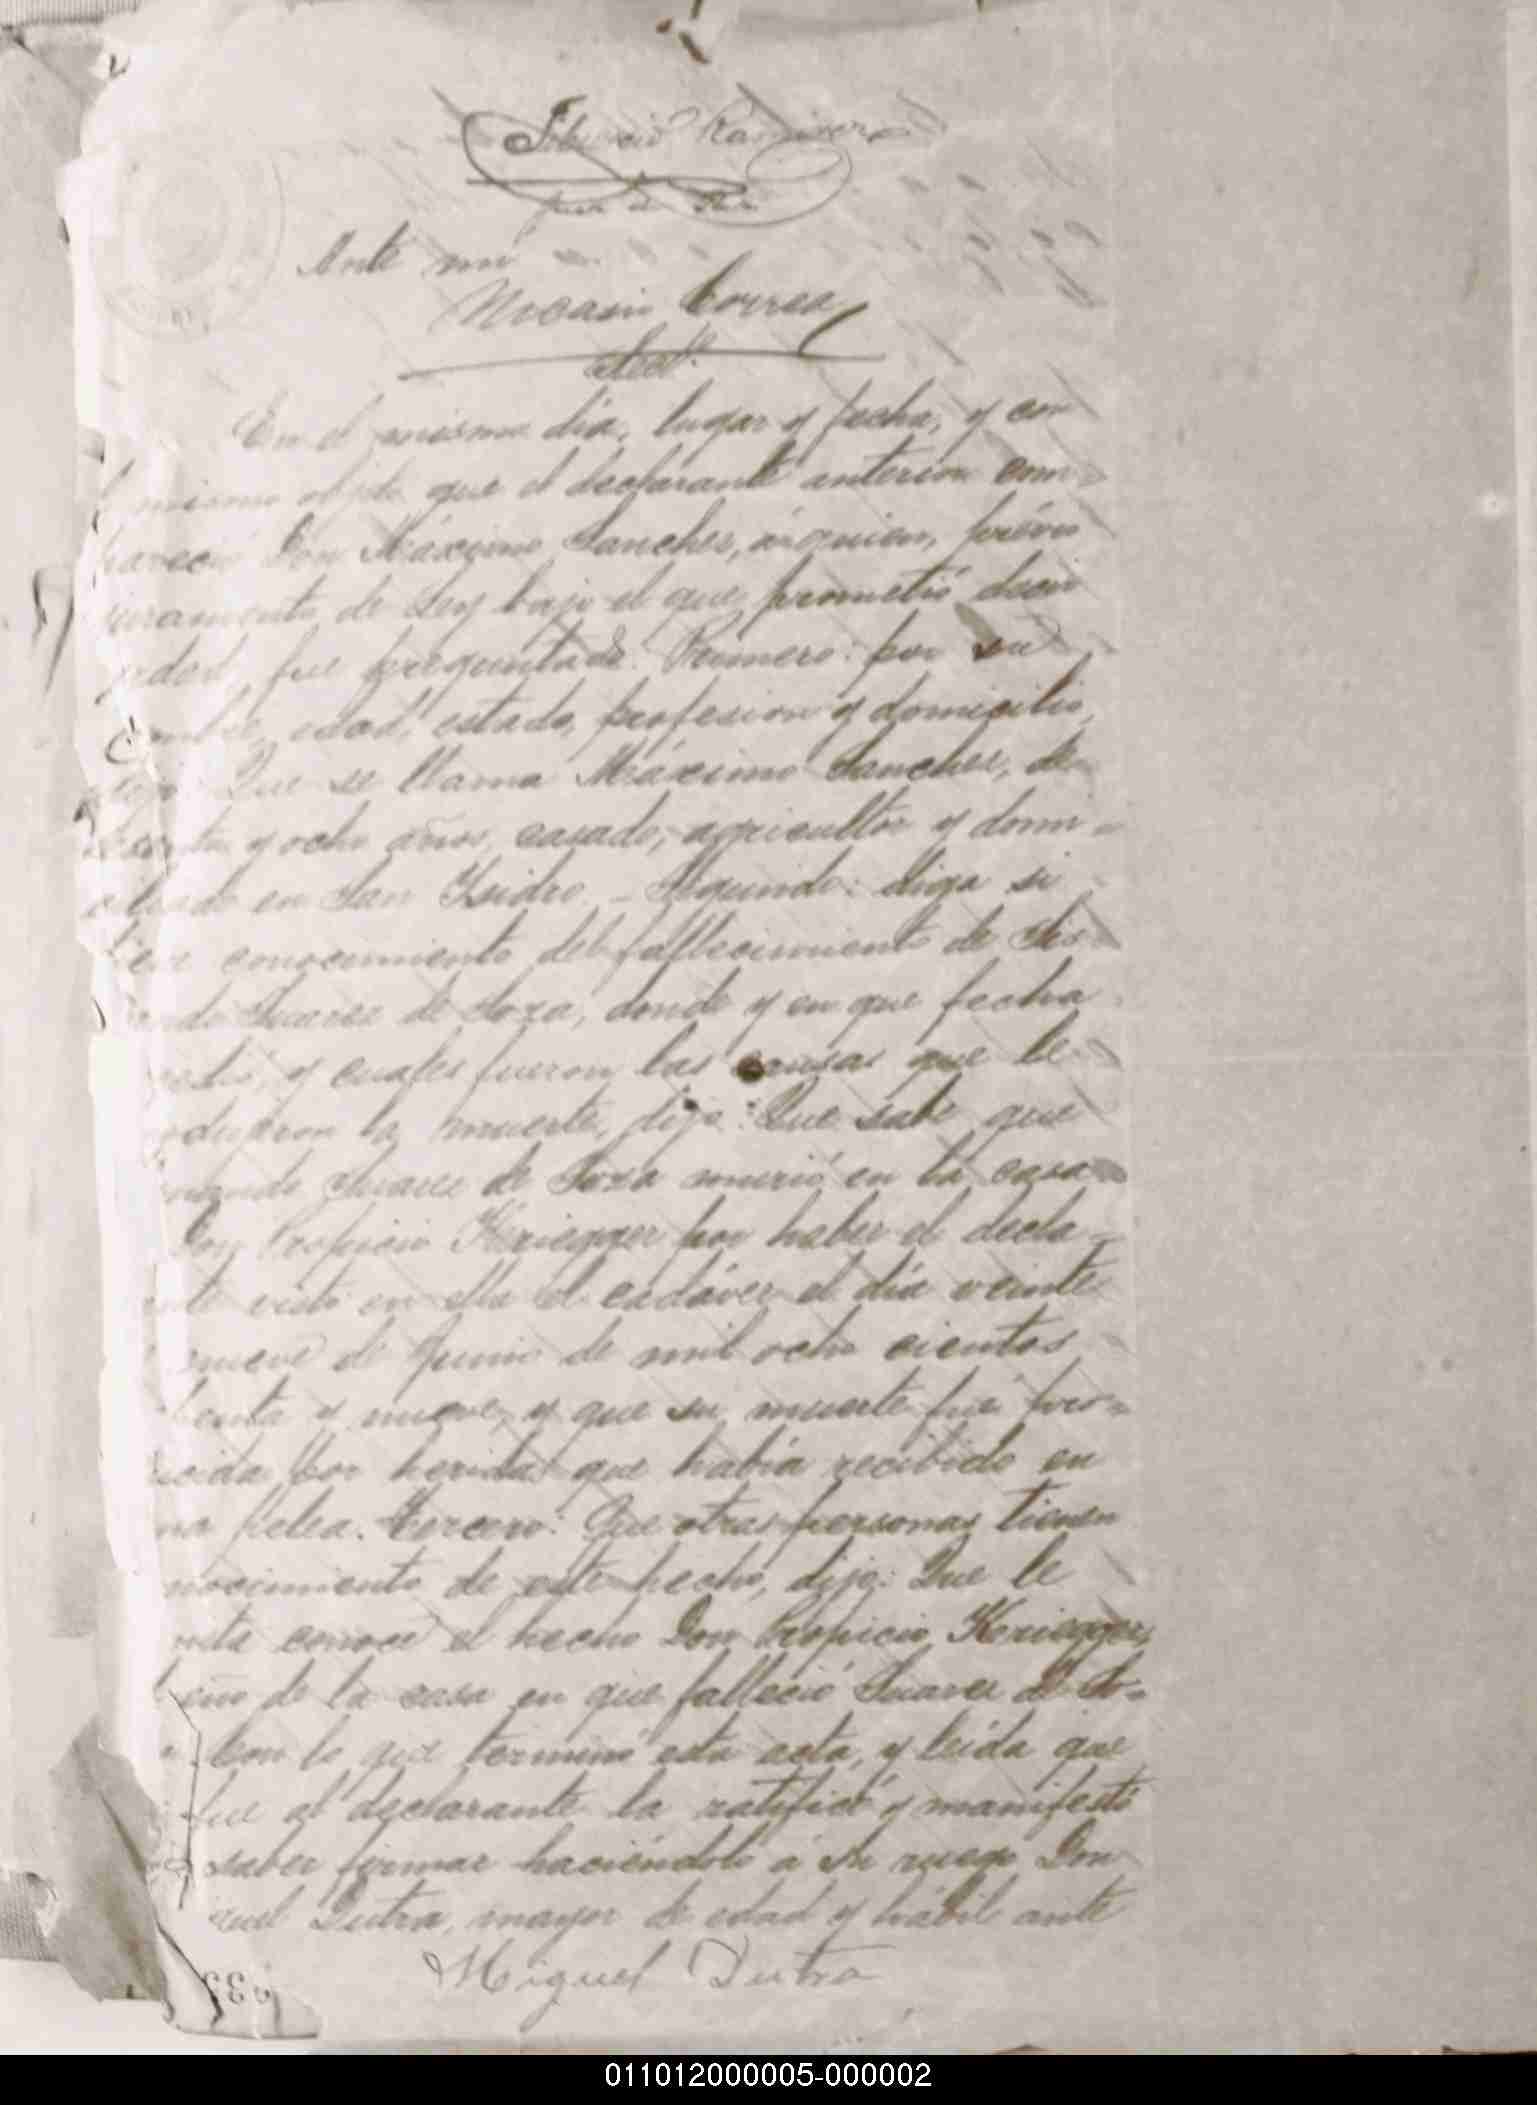 Ramirez
Juez de Paz
Ante mi
Nicasio Correa
Secº
En el mismo dia, lugar y fecha, y con
mismo objeto que el declarante anterior com-
pareció Don Máximo Sanches, á quien, prévio
juramento de Ley bajo el que prometió decir
verdad, fue preguntado: Primero: por su
nombre, edad, estado, profesion y domicilio,
dijo: Que se llama Máximo Sanches, de
y ocho años, casado, agricultor y domi-
ciliado en San Ysidro. - Segundo: diga si
tiene conocimiento del fallecimiento de Sis-
nando Suares de Soza, donde y en que fecha
y cuales fueron las causas que le
produjeron la muerte, dijo: Que sabe que
Sisnando Suares de Soza murió en la casa
Don Propicio Keriegger por haber el decla-
rante visto en ella el cadáver el dia veinte
nueve de Junio de mil ocho cientos
y nueve, y que su muerte fué pro-
ducida por heridas que había recibido en
una pelea. Tercero: Que otras personas tienen
conocimiento de este hecho, dijo: Que le
consta conoce el hecho Don Propicio Keriegger,
dueño de la casa en que falleció Suares de So-
Con lo que terminó esta acta, y leida que
fue al declarante la ratificó y manifestó
saber firmar haciéndolo á su ruego Don
Miguel Dutra, mayor de edad y hábil ante
Miguel Dutra
011012000005-000002